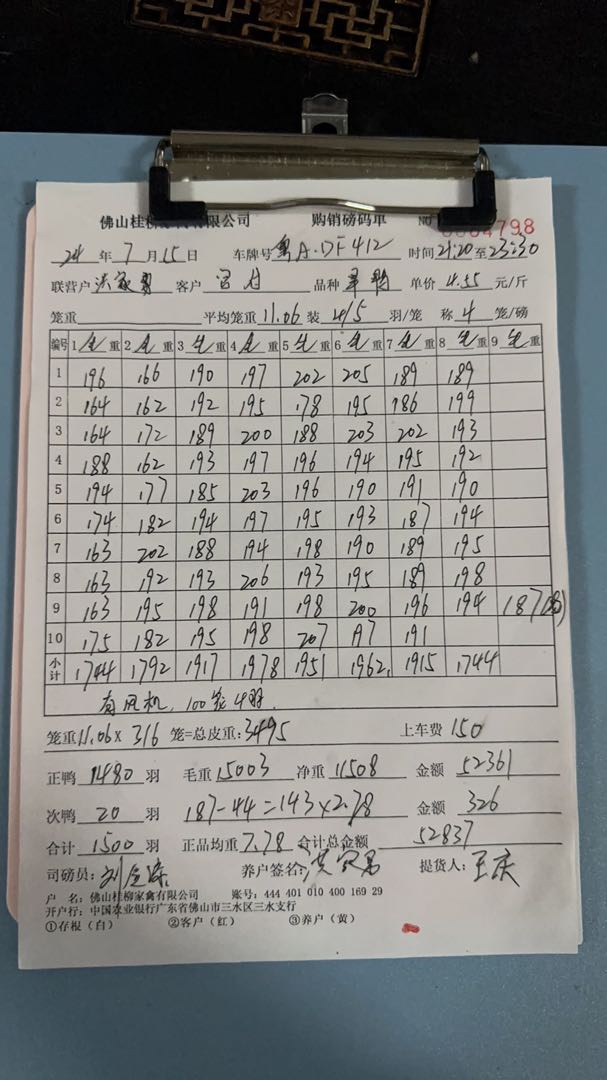 佛山桂柳家禽有限公司 购销磅码单 NO 4798
24 年 7 月 15 日 车牌号 粤A·DF412 时间 21:20 至 23:30
联营户 客户 品种 单价 4.55 元/斤
笼重 平均笼重 11.06 装 4/5 羽/笼 称 4 笼/磅
编号 1 毛 重 2 毛 重 3 毛 重 4 毛 重 5 毛 重 6 毛 重 7 毛 重 8 毛 重 9 毛 重
1 196 166 190 197 202 205 189 189
2 164 162 192 195 178 195 186 199
3 164 172 189 200 188 203 202 193
4 188 162 193 197 196 194 195 192
5 194 177 185 203 196 190 191 190
6 174 182 194 197 195 193 187 194
7 163 202 188 194 198 190 189 195
8 163 192 193 206 193 195 189 198
9 163 195 198 191 198 200 196 194 187
10 175 182 195 198 207 197 191
小计 1744 1792 1917 1978 1951 1962 1915 1744
有风机, 100笼4羽
笼重 11.06 × 316 笼=总皮重: 3495 上车费 150
正鸭 1480 羽 毛重 15003 净重 11508 金额 52361
次鸭 20 羽 187-44=143×2.28 金额 326
合计 1500 羽 正品均重 7.78 合计总金额 52837
司磅员: 养户签名: 提货人: 王庆
户 名: 佛山桂柳家禽有限公司 账号: 444 401 010 400 169 29
开户行: 中国农业银行广东省佛山市三水区三水支行
①存根（白） ②客户（红） ③养户（黄）